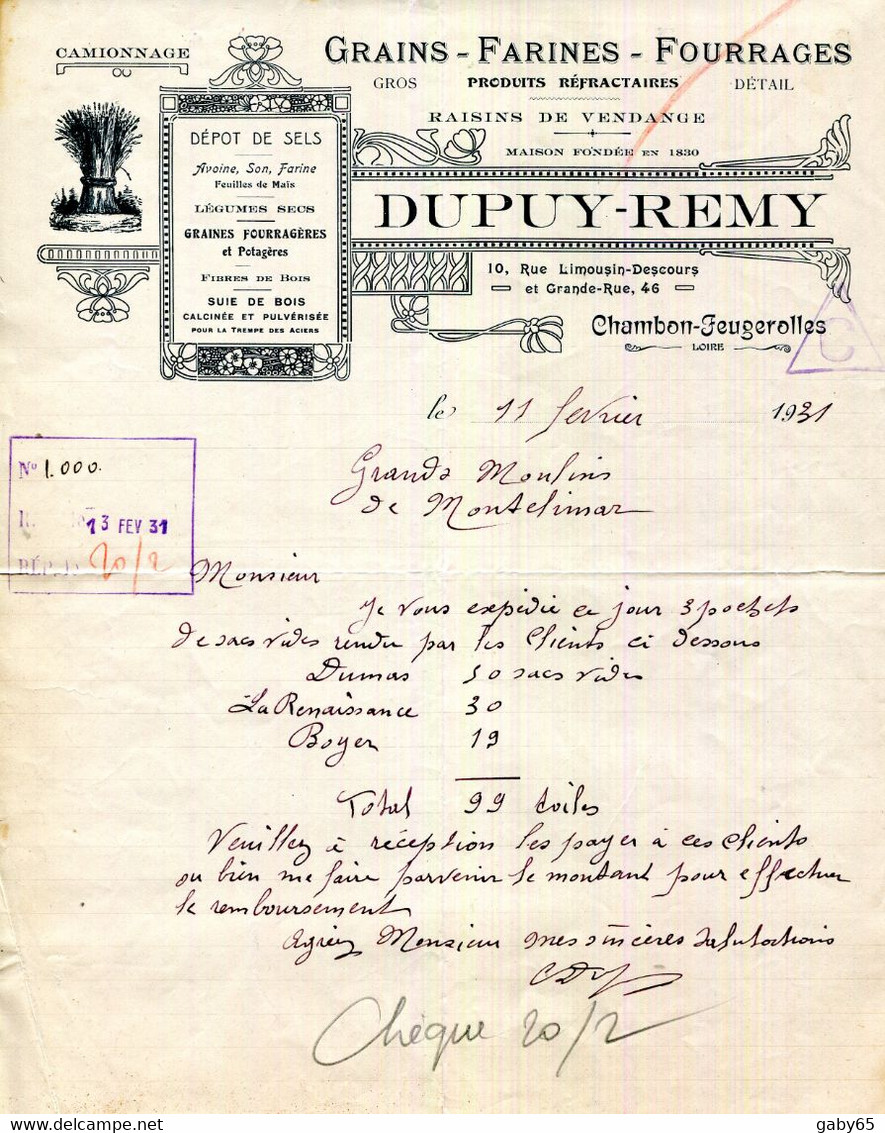 CAMIONNAGE
GRAINS - FARINES - FOURRAGES
GROS PRODUITS RÉFRACTAIRES DÉTAIL
RAISINS DE VENDANGE
MAISON FONDÉE EN 1830
DUPUY-REMY
10, Rue Limousin-Descours
et Grande-Rue, 46
Chambon-Feugerolles
LOIRE
C
DÉPOT DE SELS
Avoine, Son, Farine
Feuilles de Maïs
LÉGUMES SECS
GRAINES FOURRAGÈRES
et Potagères
FIBRES DE BOIS
SUIE DE BOIS
CALCINÉE ET PULVÉRISÉE
POUR LA TREMPE DES ACIERS
le 11 fevrier 1931
No 1.000.
13 FEV 31
RÉP. 20/2
Grands Moulins
de Montelimar
Monsieur
Je vous expedie ce jour 3 pochets
de sacs vides rendu par les clients ci dessous
Dumas 50 sacs vides
La Renaissance 30
Boyer 19
Total 99 toiles
Veuillez à réception les payer à ces clients
ou bien me faire parvenir le montant pour effectuer
le remboursement
Agréez Monsieur mes sincères salutations
Chèque 20/2
gaby65